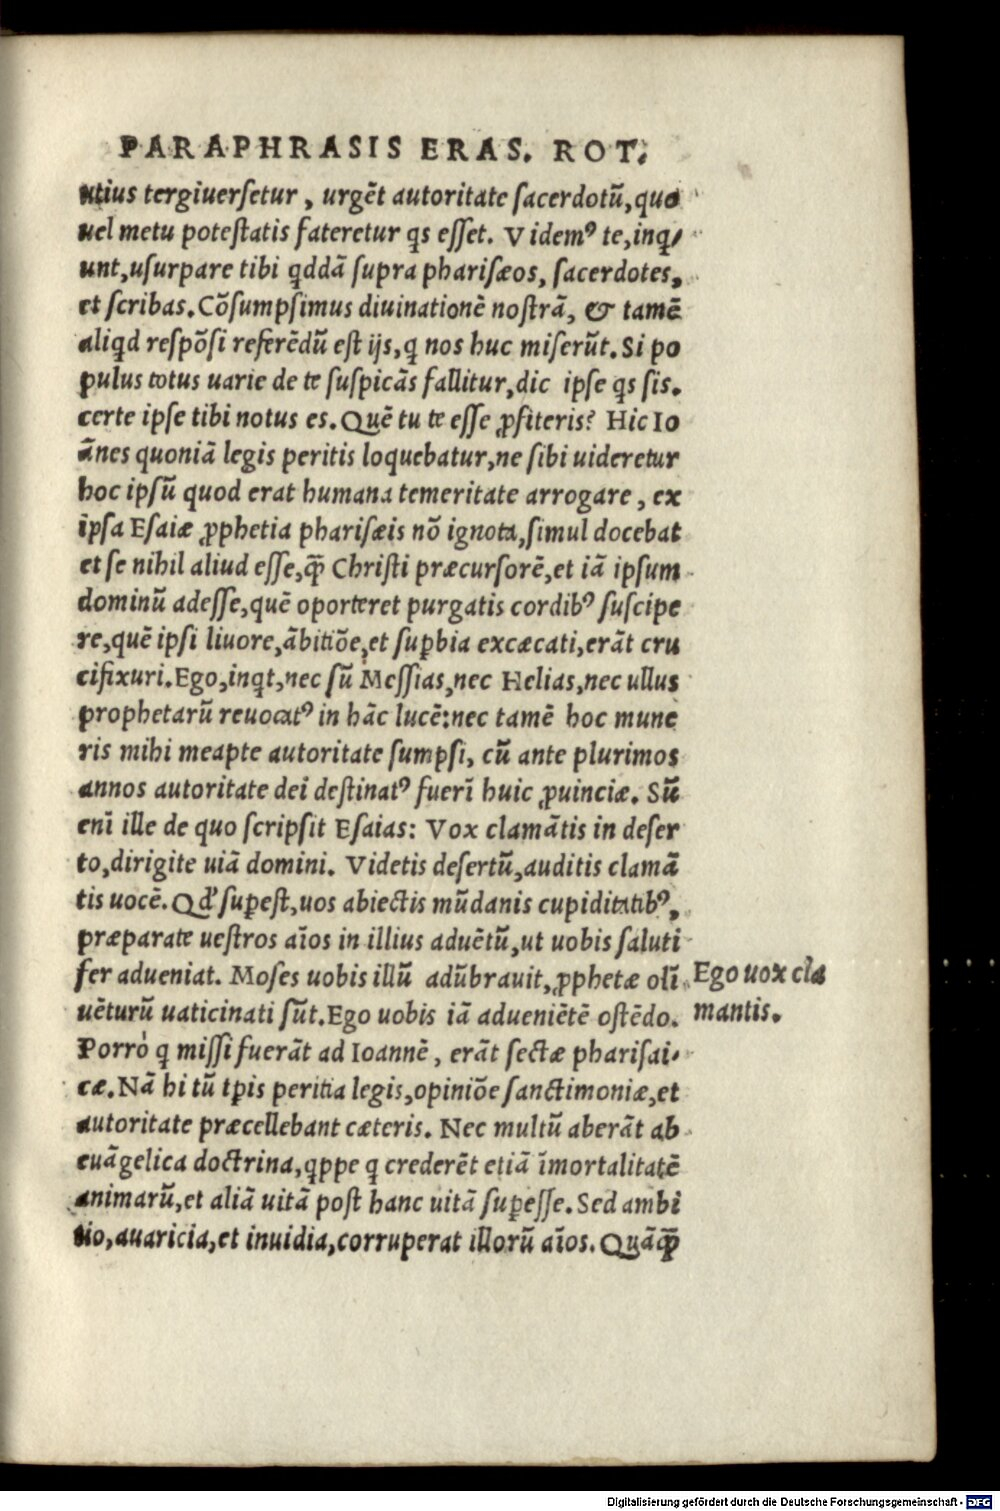 PARAPHRASIS ERAS. ROT.
utius tergiuersetur, urgẽt autoritate sacerdotũ, quo
uel metu potestatis fateretur qs esset. Videmꝰ te, inq/
unt, usurpare tibi qddã supra pharisæos, sacerdotes,
et scribas. Cõsumpsimus diuinationẽ nostrã, & tamẽ
aliqd respõsi referẽdũ est ijs, q nos huc miserũt. Si po
pulus totus uarie de te suspicãs fallitur, dic ipse qs sis.
certe ipse tibi notus es. Quẽ tu te esse ꝓfiteris? Hic Io
ãnes quoniã legis peritis loquebatur, ne sibi uideretur
hoc ipsũ quod erat humana temeritate arrogare, ex
ipsa Esaiæ ꝓphetia pharisæis nõ ignota, simul docebat
et se nihil aliud esse, q̃ Christi præcursorẽ, et iã ipsum
dominũ adesse, quẽ oporteret purgatis cordibꝰ suscipe
re, quẽ ipsi liuore, ãbitiõe, et suꝑbia excæcati, erãt cru
cifixuri. Ego, inqt, nec sũ Messias, nec Helias, nec ullus
prophetarũ reuocatꝰ in hãc lucẽ: nec tamẽ hoc mune
ris mihi meapte autoritate sumpsi, cũ ante plurimos
annos autoritate dei destinatꝰ fuerĩ huic ꝓuinciæ. Sũ
enĩ ille de quo scripsit Esaias: Vox clamãtis in deser
to, dirigite uiã domini. Videtis desertũ, auditis clamã
tis uocẽ. Qd' suꝑest, uos abiectis mũdanis cupiditatibꝰ,
præparate uestros aĩos in illius aduẽtũ, ut uobis saluti
fer adueniat. Moses uobis illũ adũbrauit, ꝓphetæ olĩ
uẽturũ uaticinati sũt. Ego uobis iã adueniẽtẽ ostẽdo.
Ego uox cla
mantis.
Porrò q missi fuerãt ad Ioannẽ, erãt sectæ pharisai/
cæ. Nã hi tũ tꝑis peritia legis, opiniõe sanctimoniæ, et
autoritate præcellebant cæteris. Nec multũ aberãt ab
euãgelica doctrina, qppe q crederẽt etiã ĩmortalitatẽ
animarũ, et aliã uitã post hanc uitã suꝑesse. Sed ambi
tio, auaricia, et inuidia, corruperat illorũ aĩos. Quãq̃
Digitalisierung gefördert durch die Deutsche Forschungsgemeinschaft - DFG